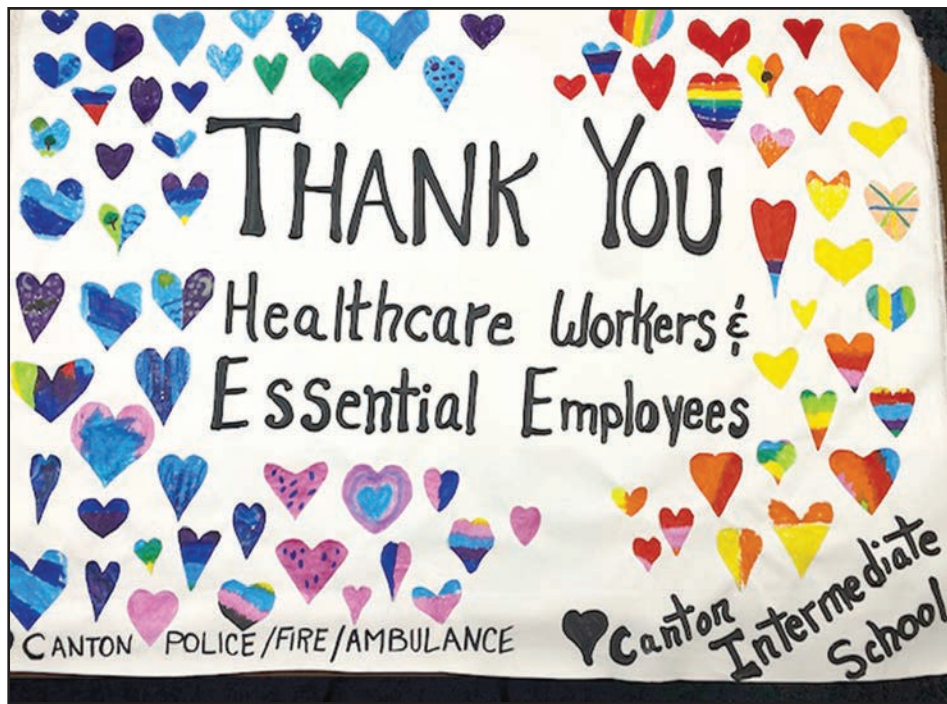 THANK YOU
Healthcare Workers &
Essential Employees
CANTON POLICE/FIRE/AMBULANCE
Canton
Intermediate
School